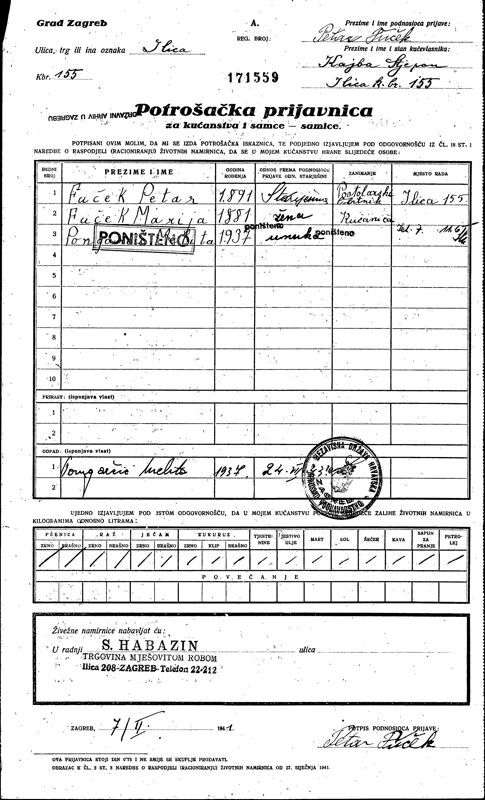 Grad Zagreb
Ulica, trg ili ina oznaka Ilica
Kbr. 155
A.
REG. BROJ:
171559
Prezime i ime podnosioca prijave:
Petar Fuček
Prezime i ime i stan kućevlasnika:
Hajba Stjepan
Ilica k. br. 155
DRŽAVNI ARHIV U ZAGREBU
Potrošačka prijavnica
za kućanstva i samce – samice.
POTPISANI OVIM MOLIM, DA MI SE IZDA POTROŠAČKA ISKAZNICA, TE PODJEDNO IZJAVLJUJEM POD ODGOVORNOŠĆU IZ ČL. 18 ST. 1
NAREDBE O RASPODJELI (RACIONIRANJU) ŽIVOTNIH NAMIRNICA, DA SE U MOJEM KUĆANSTVU HRANE SLIJEDEĆE OSOBE:
REDNI BROJ PREZIME I IME GODINA ROĐENJA ODNOS PREMA PODNOSIOCU PRIJAVE ODN. STARJEŠINI ZANIMANJE MJESTO RADA
1 Fuček Petar 1891 Starješina Postolarski obrtnik Ilica 155
2 Fuček Marija 1881 žena Kućanica
3 PONIŠTENO 1937 poništeno unuka poništeno
4
5
6
7
8
9
10
PRIRAST: (ispunjava vlast)
ODPAD: (ispunjava vlast)
1 1937. 24.
2
NEZAVISNA DRŽAVA HRVATSKA
UJEDNO IZJAVLJUJEM POD ISTOM ODGOVORNOŠĆU, DA U MOJEM KUĆANSTVU ZALIHE ŽIVOTNIH NAMIRNICA U
KILOGRAMIMA ODNOSNO LITRAMA:
PŠENICA RAŽ JEČAM KUKURUZ TJESTENINE JESTIVO ULJE MAST SOL ŠEĆER KAVA SAPUN ZA PRANJE PETROLEJ
ZRNO BRAŠNO ZRNO BRAŠNO ZRNO BRAŠNO ZRNO KLIP BRAŠNO
/ / / / / / / / / / / / / / / / /
POVEĆANJE
Živežne namirnice nabavljat ću:
U radnji S. HABAZIN ulica
TRGOVINA MJEŠOVITOM ROBOM
Ilica 208-ZAGREB-Telefon 22-212
ZAGREB, 7/II 1941
POTPIS PODNOSIOCA PRIJAVE:
Petar Fuček
OVA PRIJAVNICA STOJI DIN 0'75 I NE SMIJE SE SKUPLJE PRODAVATI.
OBRAZAC K ČL. 3 ST. 3 NAREDBE O RASPODJELI (RACIONIRANJU) ŽIVOTNIH NAMIRNICA OD 27. SIJEČNJA 1941.